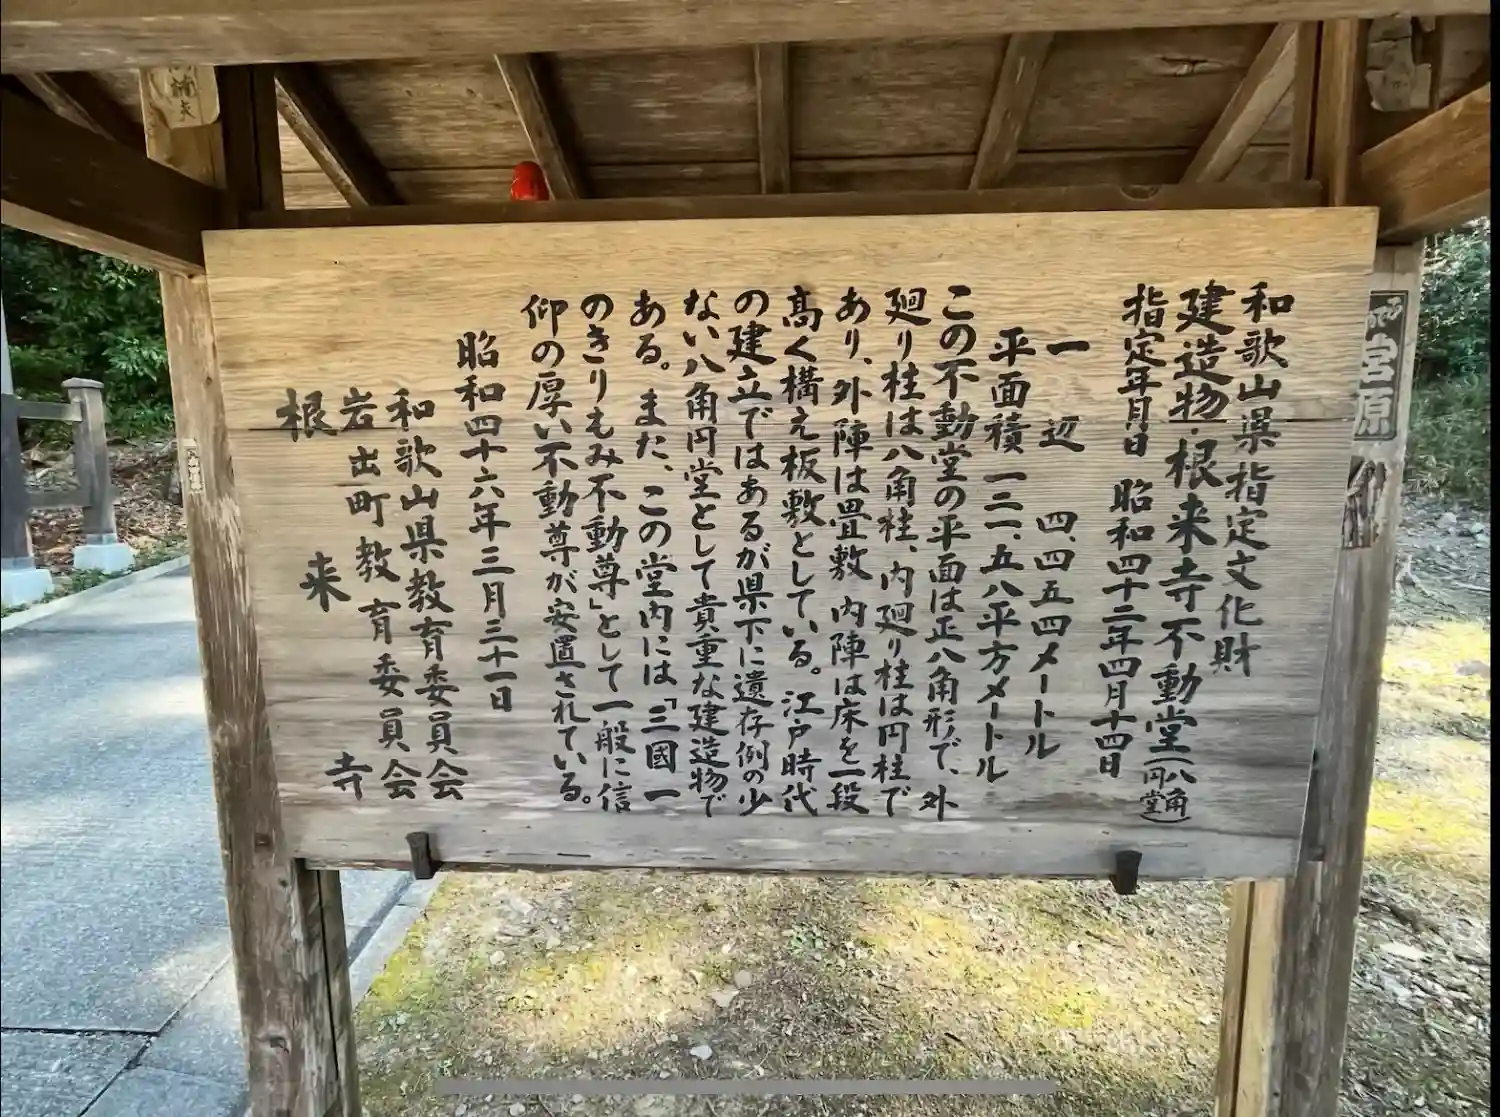 和歌山県指定文化財
建造物・根来寺不動堂(八角円堂)
指定年月日 昭和四十二年四月十四日
一辺 四.四五四メートル
平面積 一二一.五八平方メートル
この不動堂の平面は正八角形で、外
廻り柱は八角柱、内廻り柱は円柱で
あり、外陣は畳敷 内陣は床を一段
高く構え板敷としている。江戸時代
の建立ではあるが県下に遺存例の少
ない八角円堂として貴重な建造物で
ある。また、この堂内には「三國一
のきりもみ不動尊」として一般に信
仰の厚い不動尊が安置されている。
昭和四十六年三月三十一日
和歌山県教育委員会
岩出町教育委員会
根来寺
宮原